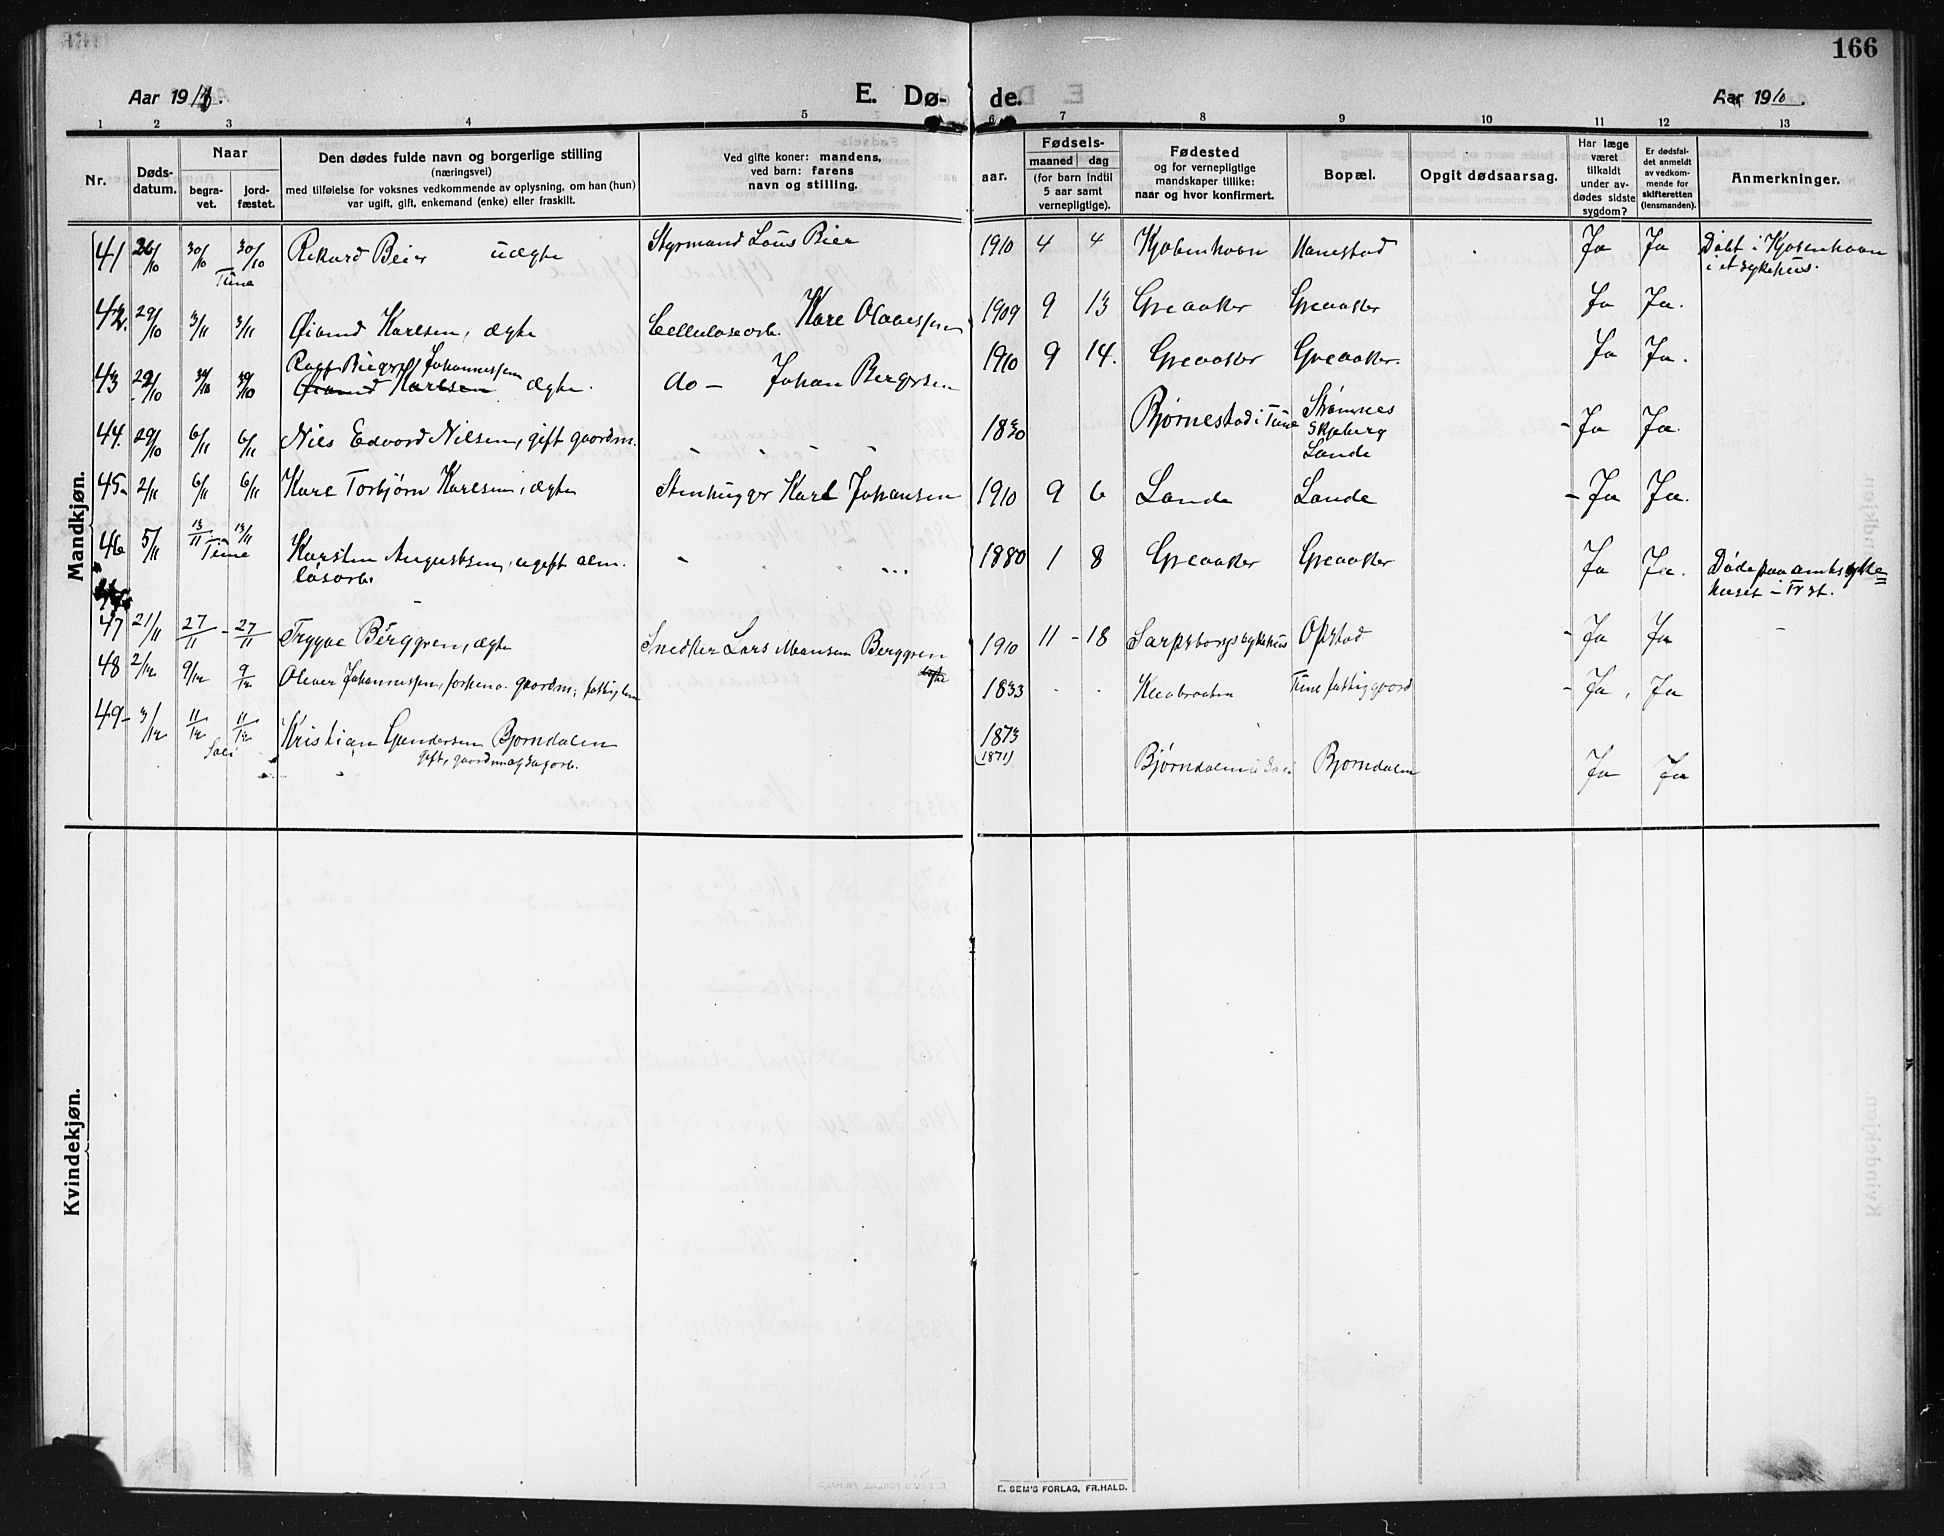 166
Aar 1910.
E. Dø- de.
Aar 1910.
1 2 3 4 5 6 7 8 9 10 11 12 13
Nr.
Døds-
datum.
Naar
begra-
vet.
jord-
fæstet.
Den dødes fulde navn og borgerlige stilling
(næringsvei)
med tilføielse for voksnes vedkommende av oplysning, om han (hun)
var ugift, gift, enkemand (enke) eller fraskilt.
Ved gifte koner: mandens,
ved barn: farens
navn og stilling.
aar.
Fødsels-
maaned dag
(for barn indtil
5 aar samt
vernepligtige).
Fødested
og for vernepligtige
mandskaper tillike:
naar og hvor konfirmert.
Bopæl.
Opgit dødsaarsag.
Har læge
været
tilkaldt
under av-
dødes sidste
sygdom?
Er dødsfal-
det anmeldt
av vedkom-
mende for
skifteretten
(lensmanden).
Anmerkninger.
Mandkjøn.
41 26/10 30/10 30/10 Rikard Beier uægte Styrmand Louis Bier 1910 4 4 Kjøbenhavn Hanestad Ja Ja Døbt i Kjøbenhavn
Tune i et sykehus.
42. 29/10 3/11 3/11 Øivind Karlsen, ægte Cellulosearb. Kare Olavessen 1909 9 13 Greaaker Greaaker Ja Ja.
43 29/10 30/10 30/10 Johannessen
Øivind Karlsen ægte. do - Johan Bergersen 1910 9 14. Greaaker Greaaker. Ja Ja.
44. 29/10 6/11 6/11 Nils Edvard Nilsen, gift gaardm. 1830 Bjørnestad i Tune Strømnes
Skjeberg
Lande - Ja Ja.
45- 2/11 6/11 6/11 Kare Torbjørn Karlsen, ægte Stenhugger Karl Johansen 1910 9 6 Lande Lande - Ja Ja.
46 5/11 13/11 13/11 Karsten Augustsen, ugeft alm. 1880 1 8 Greaaker Greaaker Ja Ja. Døde paa amtsyke=
Tune løsarb. huset - Fr st.
47 21/11 27/11 - 27/11 Trygve Berggren, ægte Snedker Lars Mansen Berggren 1910 11 - 18 Sarpsborgs sykehus Opstad - Ja Ja -
48 2/12 9/12 9/12 Oliver Johannessen, forhenv. gaardm, fattiglem 1833 Tune fattiggaard - Ja, Ja
49- 3/12 11/12 11/12 Kristian Gundersen Bjørndalen 1873
Soli gift, gaardm og sagarb. (1871) Bjørndalen i Soli Bjørndalen Ja Ja
Kvindekjøn.
E. SEM'S FORLAG, FR.HALD.